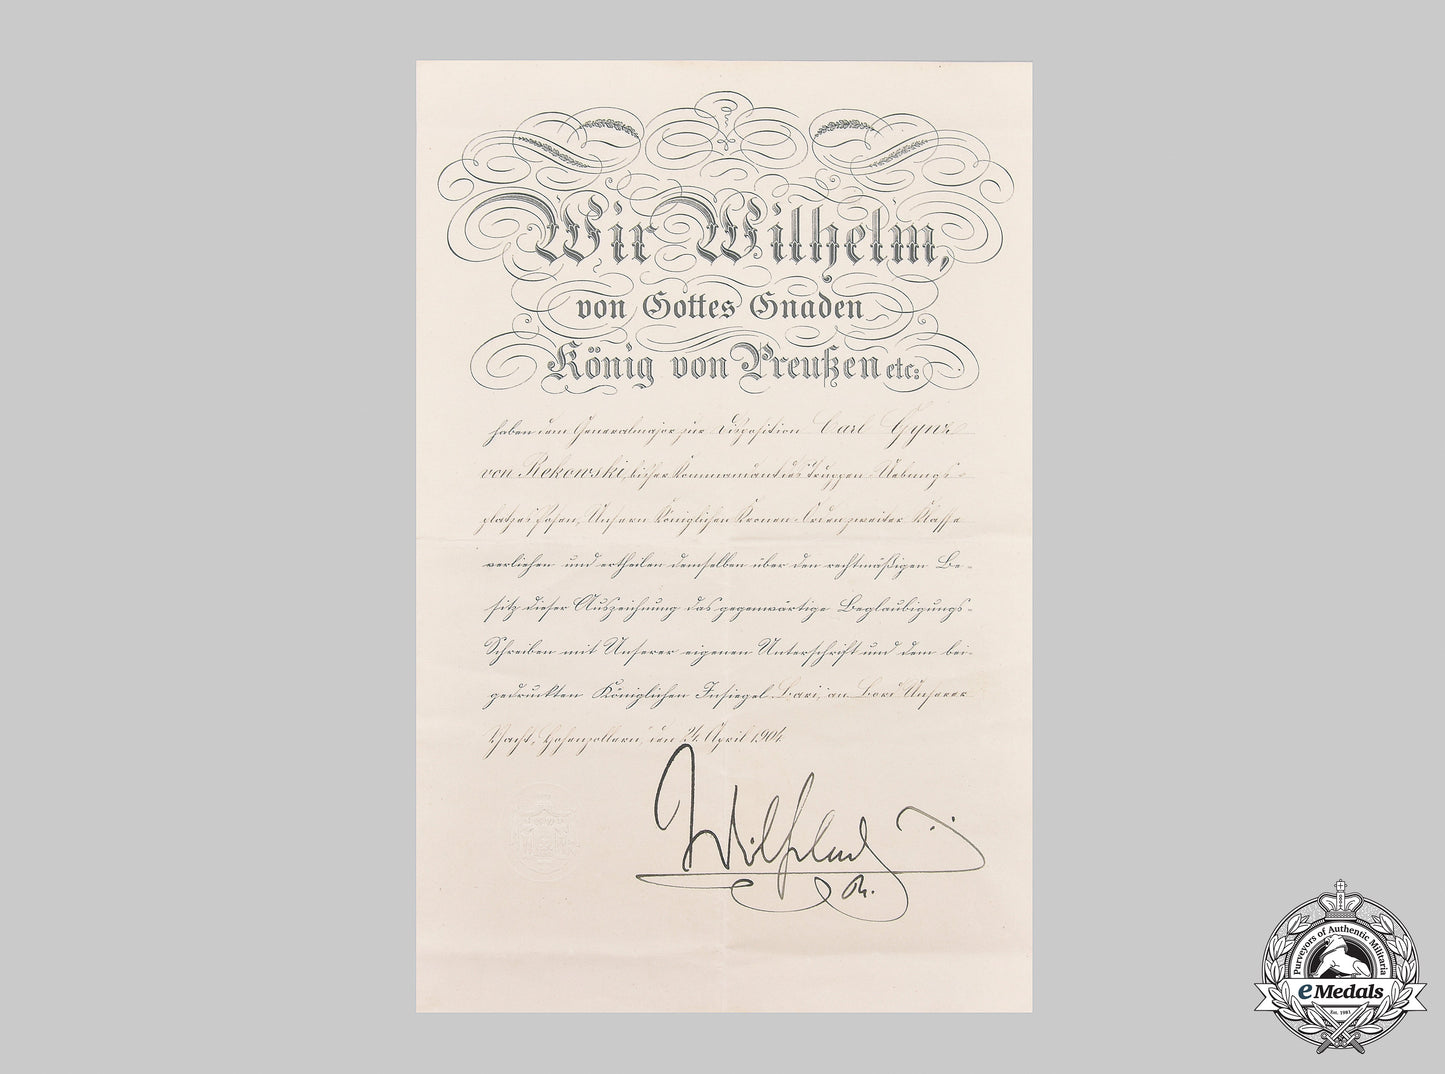 Wir Wilhelm,
von Gottes Gnaden
König von Preußen etc:
haben dem Generalmajor zur Disposition Carl Gynz
von Rekowski, bisher Kommandant des Truppen-Uebungs-
platzes Posen, Unsern Königlichen Kronen-Orden zweiter Klasse
verliehen und ertheilen demselben über den rechtmäßigen Be-
sitz dieser Auszeichnung das gegenwärtige Beglaubigungs-
Schreiben mit Unserer eigenen Unterschrift und dem bei-
gedruckten Königlichen Insiegel. Bari, an Bord Unserer
Yacht „Hohenzollern“, den 24. April 1904
Wilhelm
R.
Purveyors of Authentic Militaria
eMedals
Est. 1981